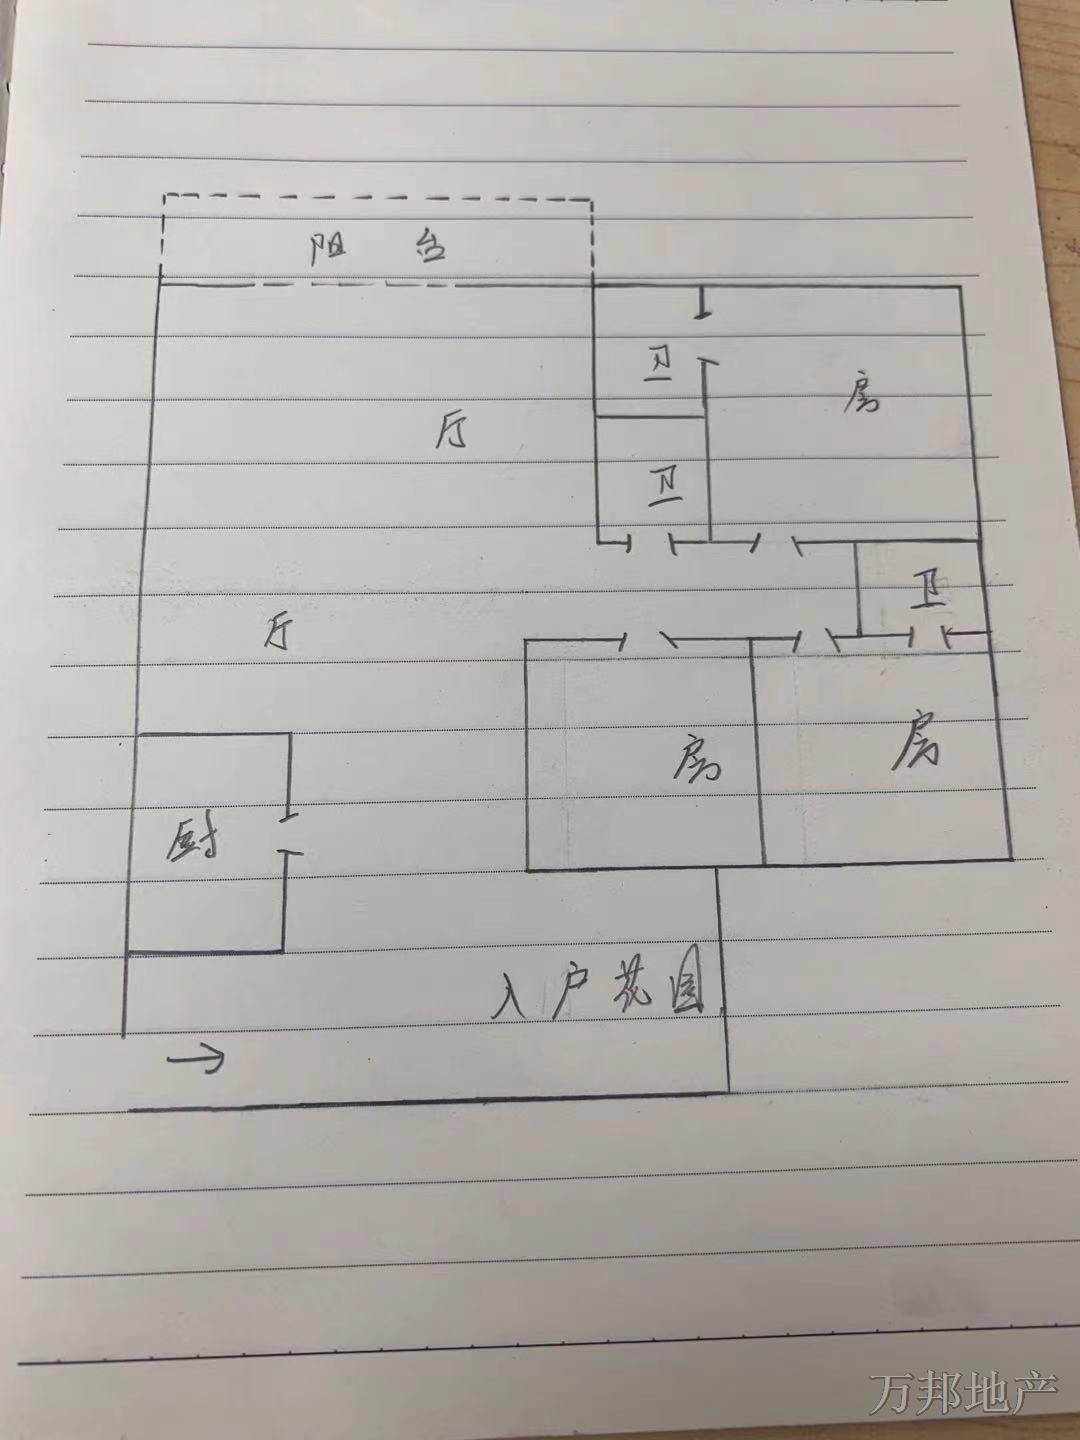 阳 台
卫
房
厅
卫
卫
厅
房
房
厨
入户花园
万邦地产